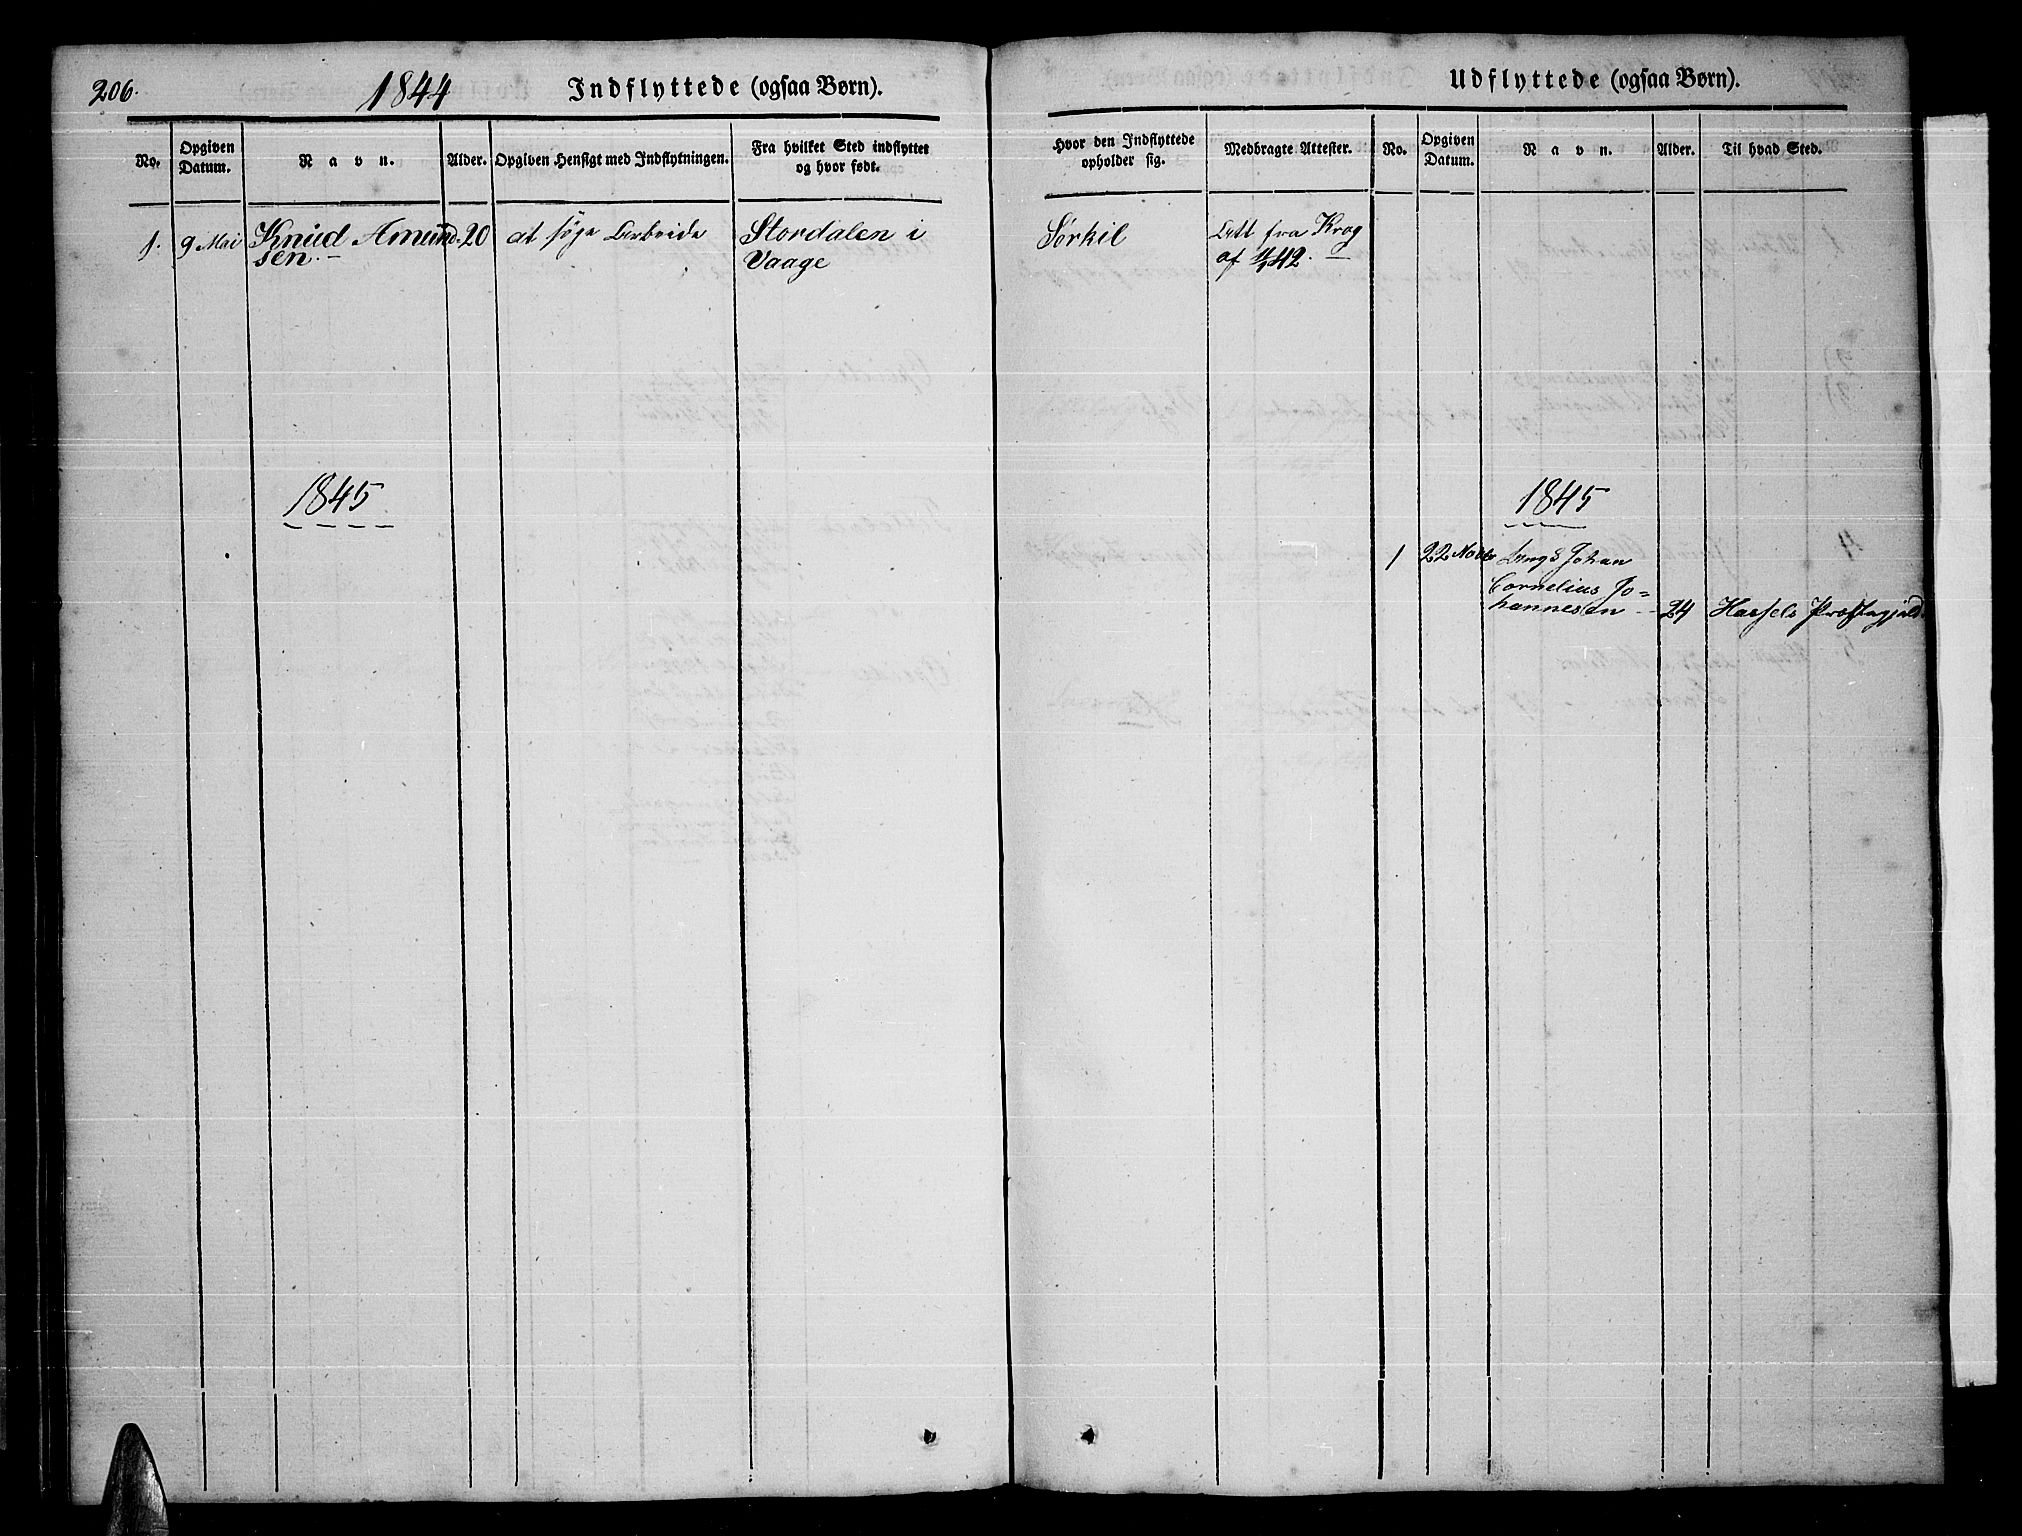 206.
1844
Indflyttede (ogsaa Børn).
Udflyttede (ogsaa Børn).
No.
Opgiven Datum.
Navn.
Alder.
Opgiven Hensigt med Indflytningen.
Fra hvilket Sted indflyttet og hvor født.
Hvor den Indflyttede opholder sig.
Medbragte Attester.
No.
Opgiven Datum.
Navn.
Alder.
Til hvad Sted.
1.
9 Mai
Knud Amund-
sen.
20
at söge Arbeide
Stordalen i
Vaage
Sørkil
Att fra Krog
af 42.
1845
1845
1
22 Novbr
Ungk Johan
Cornelius Jo=
hannesen
24
Hassels Præstegjeld